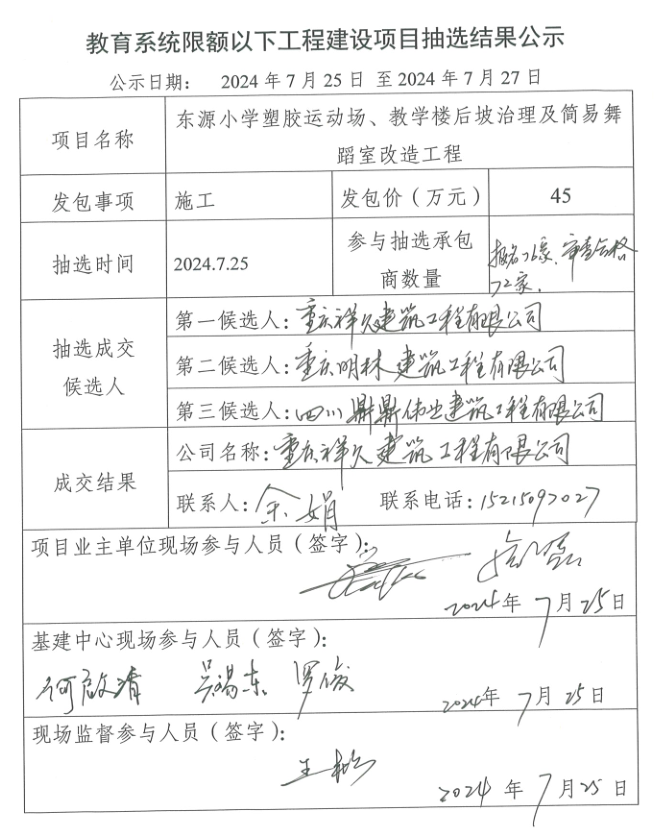 教育系统限额以下工程建设项目抽选结果公示
公示日期: 2024年7月25日 至2024年7月27日
项目名称
东源小学塑胶运动场、教学楼后坡治理及简易舞
蹈室改造工程
发包事项 施工 发包价（万元） 45
抽选时间 2024.7.25
参与抽选承包
商数量
报名76家、审查合格
72家.
抽选成交
候选人
第一候选人:重庆祥久建筑工程有限公司
第二候选人:重庆明林建筑工程有限公司
第三候选人:四川鼎鼎伟业建筑工程有限公司
成交结果
公司名称:重庆祥久建筑工程有限公司
联系人:余娟 联系电话:15215097027
项目业主单位现场参与人员（签字）:
2024年7月25日
基建中心现场参与人员（签字）:
何启清 吴锡东 罗俊
2024年7月25日
现场监督参与人员（签字）:
王彬
2024年7月25日